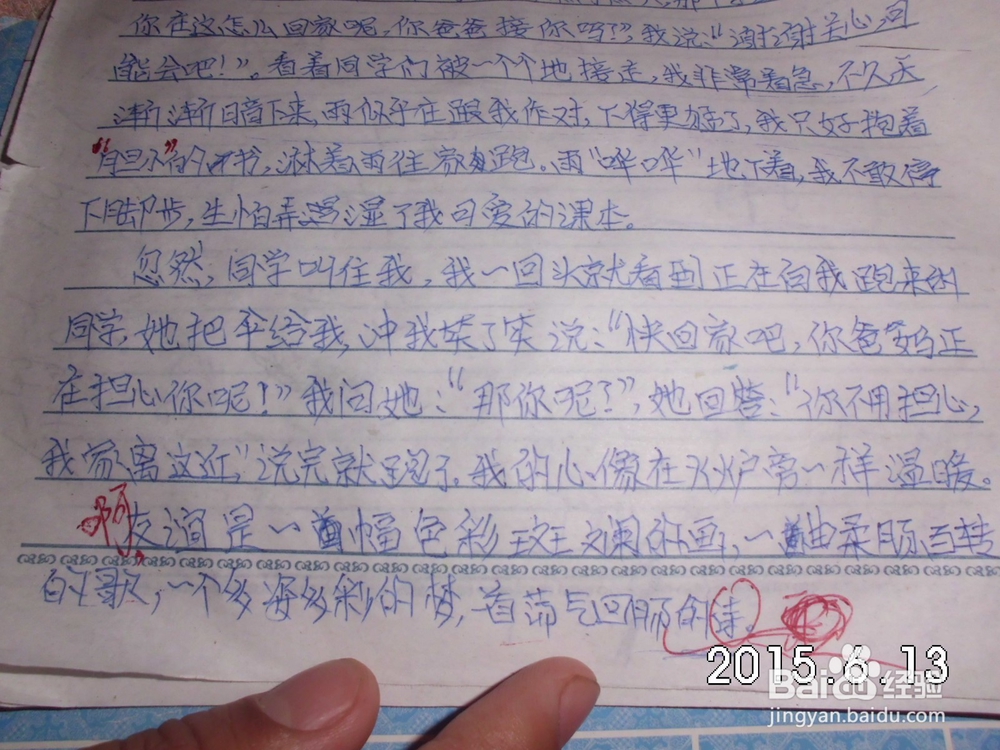 你在这怎么回家呢,你爸爸接你吗?”我说:“谢谢关心,可
能会吧!”。看着同学们被一个个地接走,我非常着急,不久天
渐渐暗下来,雨似乎在跟我作对,下得更大了,我只好抱着
“胆小”的书,淋着雨往家跑。雨“哗哗”地下着,我不敢停
下脚步,生怕弄湿了我可爱的课本。
忽然,同学叫住我,我一回头就看到正在向我跑来的
同学,她把伞给我,冲我笑了笑说:“快回家吧,你爸妈正
在担心你呢!”我问她:“那你呢?”,她回答:“你不用担心,
我家离这近”说完就跑了。我的心像在火炉旁一样温暖。
啊,友谊是一幅色彩斑斓的画,一曲柔肠百转
的歌,一个多姿多彩的梦,首荡气回肠的诗。
2015.6.13
Baidu经验
jingyan.baidu.com